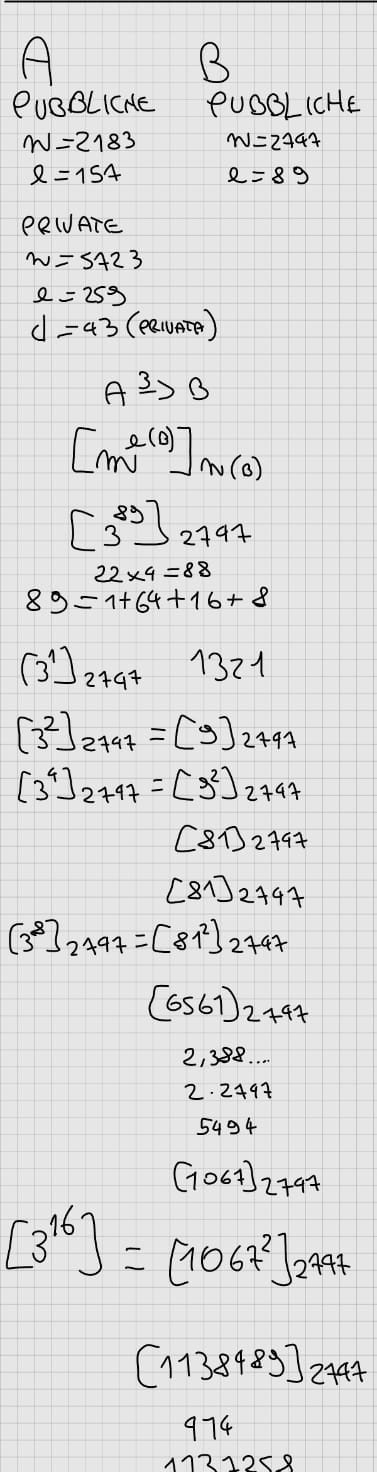 A B
PUBBLICHE PUBBLICHE
n=2183 n=2747
e=157 e=89
PRIVATE
n=5723
e=259
d=43 (PRIVATA)
A 3-> B
[m^e(B)] n(B)
[3^89] 2747
22x4=88
89=1+64+16+8
[3^1] 2747 1321
[3^2] 2747 = [9] 2747
[3^4] 2747 = [9^2] 2747
[81] 2747
[81] 2747
[3^8] 2747 = [81^2] 2747
[6561] 2747
2,388....
2·2747
5494
[1067] 2747
[3^16] = [1067^2] 2747
[1138489] 2747
414
1137258